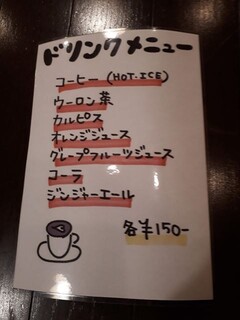 ドリンクメニュー
コーヒー (HOT・ICE)
ウーロン茶
カルピス
オレンジジュース
グレープフルーツジュース
コーラ
ジンジャーエール
各¥150-